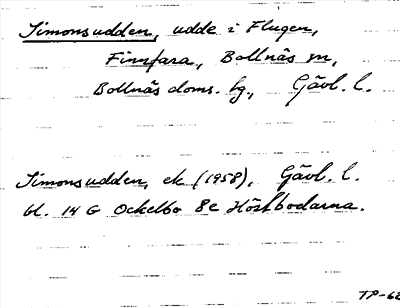 Simonsudden, udde i Flugen,
Finnfara, Bollnäs sn,
Bollnäs doms. hg, Gävl. l.
Simonsudden, ek (1958), Gävl. l.
bl. 14 G Ockelbo 8e Höstbodarna.
TP-62